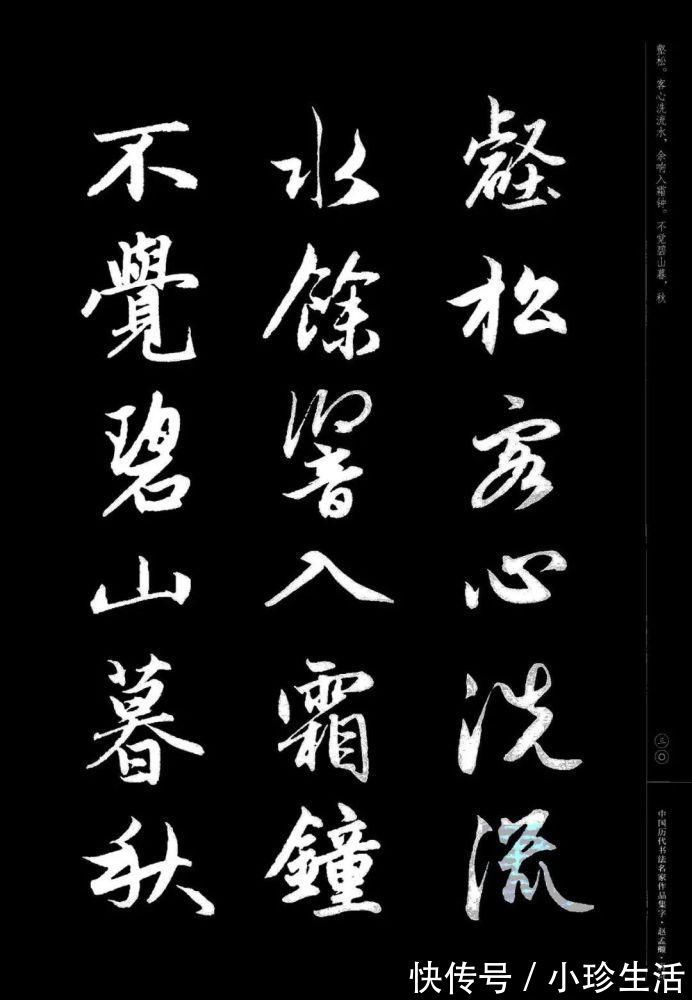 壑松客心洗流
水餘響入霜鐘
不覺碧山暮秋
壑松。客心洗流水，余响入霜钟。不觉碧山暮，秋
三〇
中国历代书法名家作品集字·赵孟頫
快传号／小珍生活